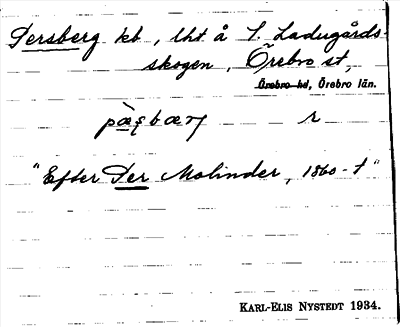 Persberg kb., lht å S. Ladugårds-
skogen, Örebro st,
Örebro hd, Örebro län.
r
"Efter Per Molinder, 1860-t"
KARL-ELIS NYSTEDT 1934.